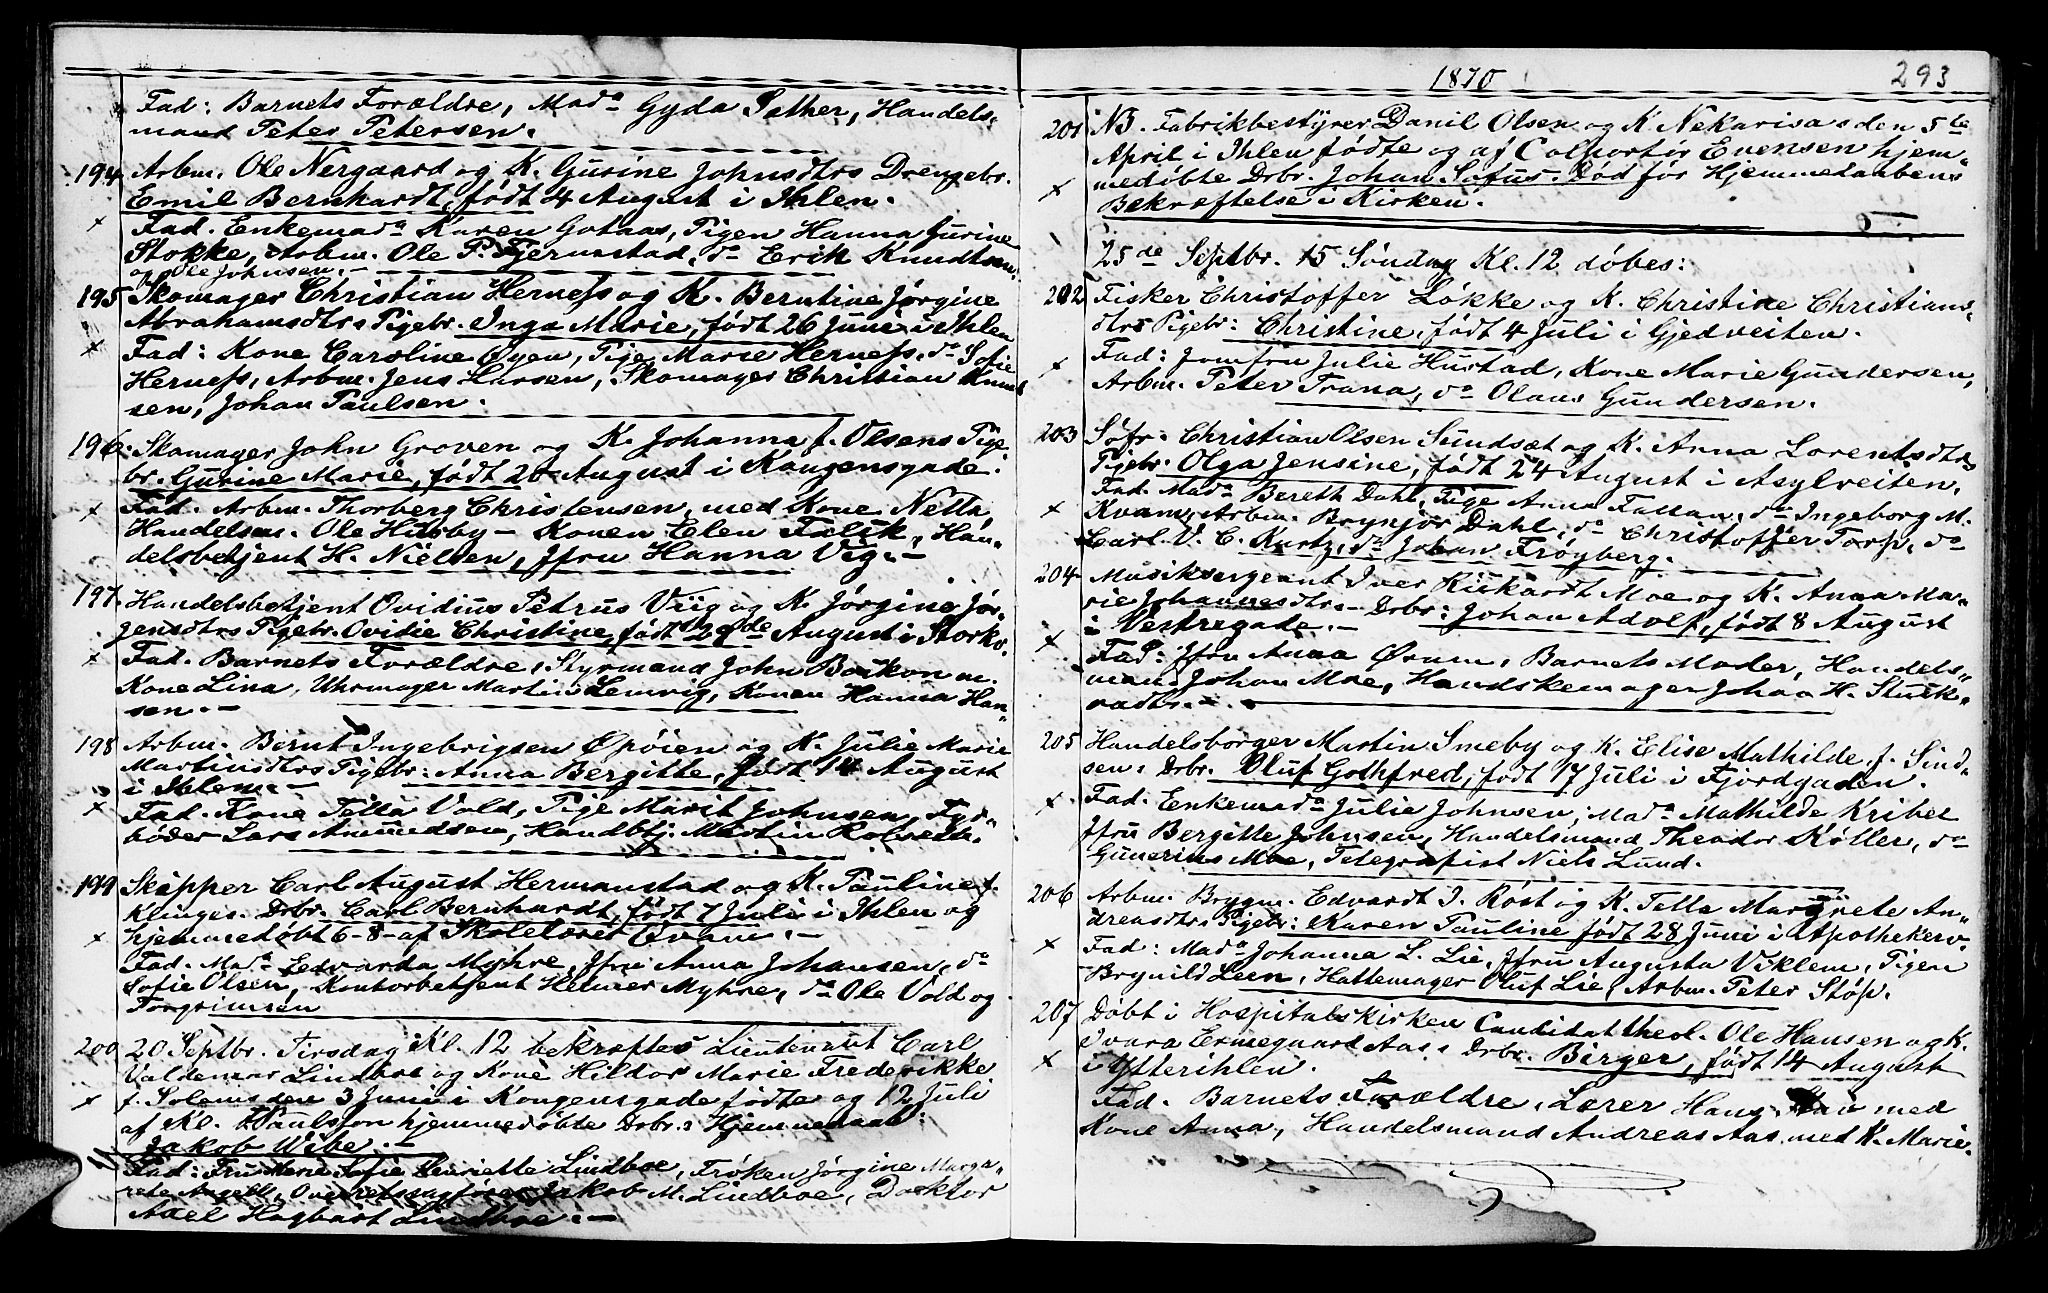 Fad: Barnets Forældre, Mada Gyda Sather, Handels-
mand Peter Petersen.
194 Arbm. Ole Nergaard og K. Gurine Johnsdtrs Drengebr.
Emil Bernhardt, født 4 August i Ihlen.
x Fad. Enkemada Karen Gotaas, Pigen Hanna Gurine
Stokke, Arbm. Ole P. Fjernstad, do Erik Knudtsen.
og Ole Johnsen.
195 Skomager Christian Hernefs og K. Berntine Jørgine
Abrahamsdtrs Pigebr. Inga Marie, født 26 Juni i Ihlen
x Fad: Kone Caroline Øyen, Pige Marie Hernefs, do Sofie
Hernefs, Arbm. Jens Larsen, Skomager Christian Knud
sen, Johan Paulsen.
196. Skomager John Groven og K. Johanna f. Olsens Pige
br. Gurine Marie, født 20 August i Kongensgade.
x Fad. Arbm. Thorberg Christensen med Kone Netta
Handelsm. Ole Husby - Konen Elen Falik, Han-
delsbetjent H. Nielsen, Jfru Hanna Vig.
197. Handelsbetjent Ovidius Petrus Viig og K. Jørgine Jør-
gensdtrs Pigebr. Ovidie Christine, født 29de August i Storkv.
x Fad. Barnets Forældre, Styrmand John Boukon m.
Kone Lina, Uhrmager Martin Lemvig, Konen Hanna Han-
sen.
198 Arbm. Bernt Ingebrigsen Øpøien og K. Julie Marie
Martinsdtrs Pigebr: Anna Bergitte, født 14 August
i Ihlen.
x Fad. Kone Tella Vold, Pige Marit Johnsen, Fyr-
bøder Lars Anundsen, Handbtj. Martin Rolvseth.
199 Skipper Carl August Hermanstad og K. Pauline f.
Klinges. Drbr. Carl Bernhardt, født 7 Juli i Ihlen og
x hjemmedøbt 6-8- af Skolelærer Qvam.
Fad. Mada Edvarda Myhre, Jfru Anna Johansen, do
Sofie Olsen, Kontorbetjent Helmer Myhre, do Ole Vold og
Torgrimsen
200 20 Septbr. Tirsdag Kl. 12 bekræftes Lieutenant Carl
Valdemar Lindboe og Kone Hilda Marie Frederikke
x f. Solems den 3 Juni i Kongensgade fødte og 12 Juli
af Kl. Paulsson hjemmedøbte Drbr.s Hjemmedaab:
Jakob Wibe.
Fad: Fru Sofie Henriette Lindboe, Frøken Jørgine Marga-
rete Angell, Overretssagfører Jakob M. Lindboe, Doktor
Axel Hagbart Lindboe.
1870
293
201 NB. Fabrikbestyrer Danil Olsen og K. Nekarisas den 5te
April i Ihlen fødte og af Colportør Evensen hjem-
x medøbte Drbr. Johan Sofus. Død før Hjemmedaabens
Bekræftelse i Kirken.
25de Septbr. 15 Søndag Kl. 12 døbes:
202 Fisker Christoffer Løkke og K. Christine Christians-
dtrs Pigebr: Christine, født 4 Juli i Gjedveiten.
x Fad: Jomfru Julie Hustad, Kone Marie Gundersen,
Arbm. Peter Trana, do Olaus Gundersen.
203 Søfr: Christian Olsen Sundsæt og K. Anna Lorentsdtrs
Pigebr. Olga Jensine, født 24 August i Asylveiten.
Fad. Mada Bereth Dahl, Pige Anna Fallan, do Ingeborg M.
x Kvam, Arbm. Brynjør Dahl, do Christoffer Torp, do
Carl V. C. Kurtz, do Johan Frøyberg.
204 Musiksergeant Iver Rickardt Moe og K. Anna Ma-
rie Johannesdtr. Drbr: Johan Adolf, født 8 August
i Vestregade.
x Fad: Jfru Anna Ørum, Barnets Moder, Handels-
mand Johan Moe, Handskemager Johan H. Stuck-
radts.
205 Handelsborger Martin Smeby og K. Elise Mathilde f. Sind-
sens Drbr. Oluf Gothfred, født 17 Juli i Fjordgaden.
x Fad. Enkemada Julie Johnsen, Mada Mathilde Kribel
Jfru Bergitte Johnsen, Handelsmand Theodor Køller, do
Gunerius Moe, Telegrafist Niels Lund.
206 Arbm. Brygm. Edvardt I. Røst og K. Tella Margrete An-
dreasdtrs Pigebr: Karen Pauline født 28 Juni i Apothekerv.
x Fad: Mada Johanna L. Lie, Jfru Augusta Viklem, Pigen
Brynild Leen, Hattemager Oluf Lie, Arbm. Peter Støp.
207 Døbt i Hospitalskirken Candidat theol. Ole Hansen og K.
Ivara Ermegaard Aas's Drbr. Birger, født 14 August
x i Ytterihlen.
Fad. Barnets Forældre, Lærer Hans med
Kone Anna, Handelsmand Andreas Aas med K. Marie.